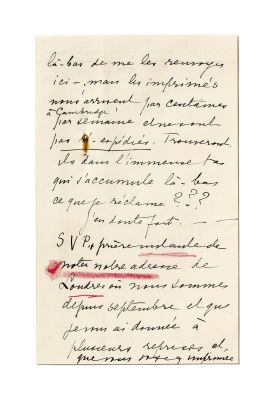 là-bas de me les renvoyer
ici — mais les imprimés
nous arrivent par centaines
à Cambridge
par semaine et ne sont
pas expédiés. Trouveront
ils dans l'immense tas
qui s'accumule là-bas
ce que je réclame ???
j'en doute fort. —
SVP prière instante de
noter notre adresse de
Londres où nous sommes
depuis septembre et que
je vous ai donnée à
plusieurs reprises et
que vous imprimée